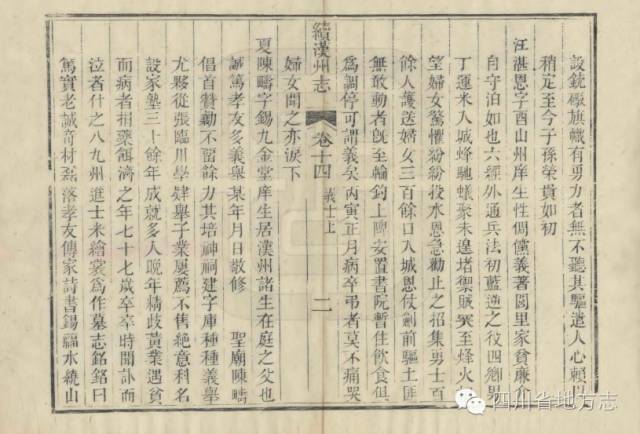 設銃礮旗幟有勇力者無不聽其驅遣人心賴以
稍定至今子孫榮貴如初
汪湛恩字酉山州庠生性倜儻義著閭里家貧廉介
自守泊如也六經外通兵法初藍逆之役四鄉男
丁運米入城蜂馳蟻聚未遑堵禦賊突至烽火
望婦女驚懼紛紛投水恩急勸止之招集勇士百
餘人護送婦女三百餘口入城恩仗劍前驅土匪
無敢動者旣至輪鈞上陴安置書院暫住飲食俱
爲調停可謂義矣丙寅正月病卒弔者莫不痛哭
婦女聞之亦淚下
續漢州志
卷十四
義士上
二
夏陳疇字錫九金堂庠生居漢州諸生在庭之父也
誠篤孝友多義舉某年月日散修 聖廟陳疇
倡首贊勷不畱餘力其培神祠建字庫種種義舉
尤夥從張臨川學肄舉子業屢薦不售絶意科名
設家塾三十餘年成就多人晚年精歧黃業遇貧
而病者捐藥餌濟之年七十七歲卒卒時聞訃而
泣者什之八九州進士米繪裳爲作墓志銘銘曰
篤實老誠奇材磊落孝友傳家詩書錫福水繞山
四川省地方志